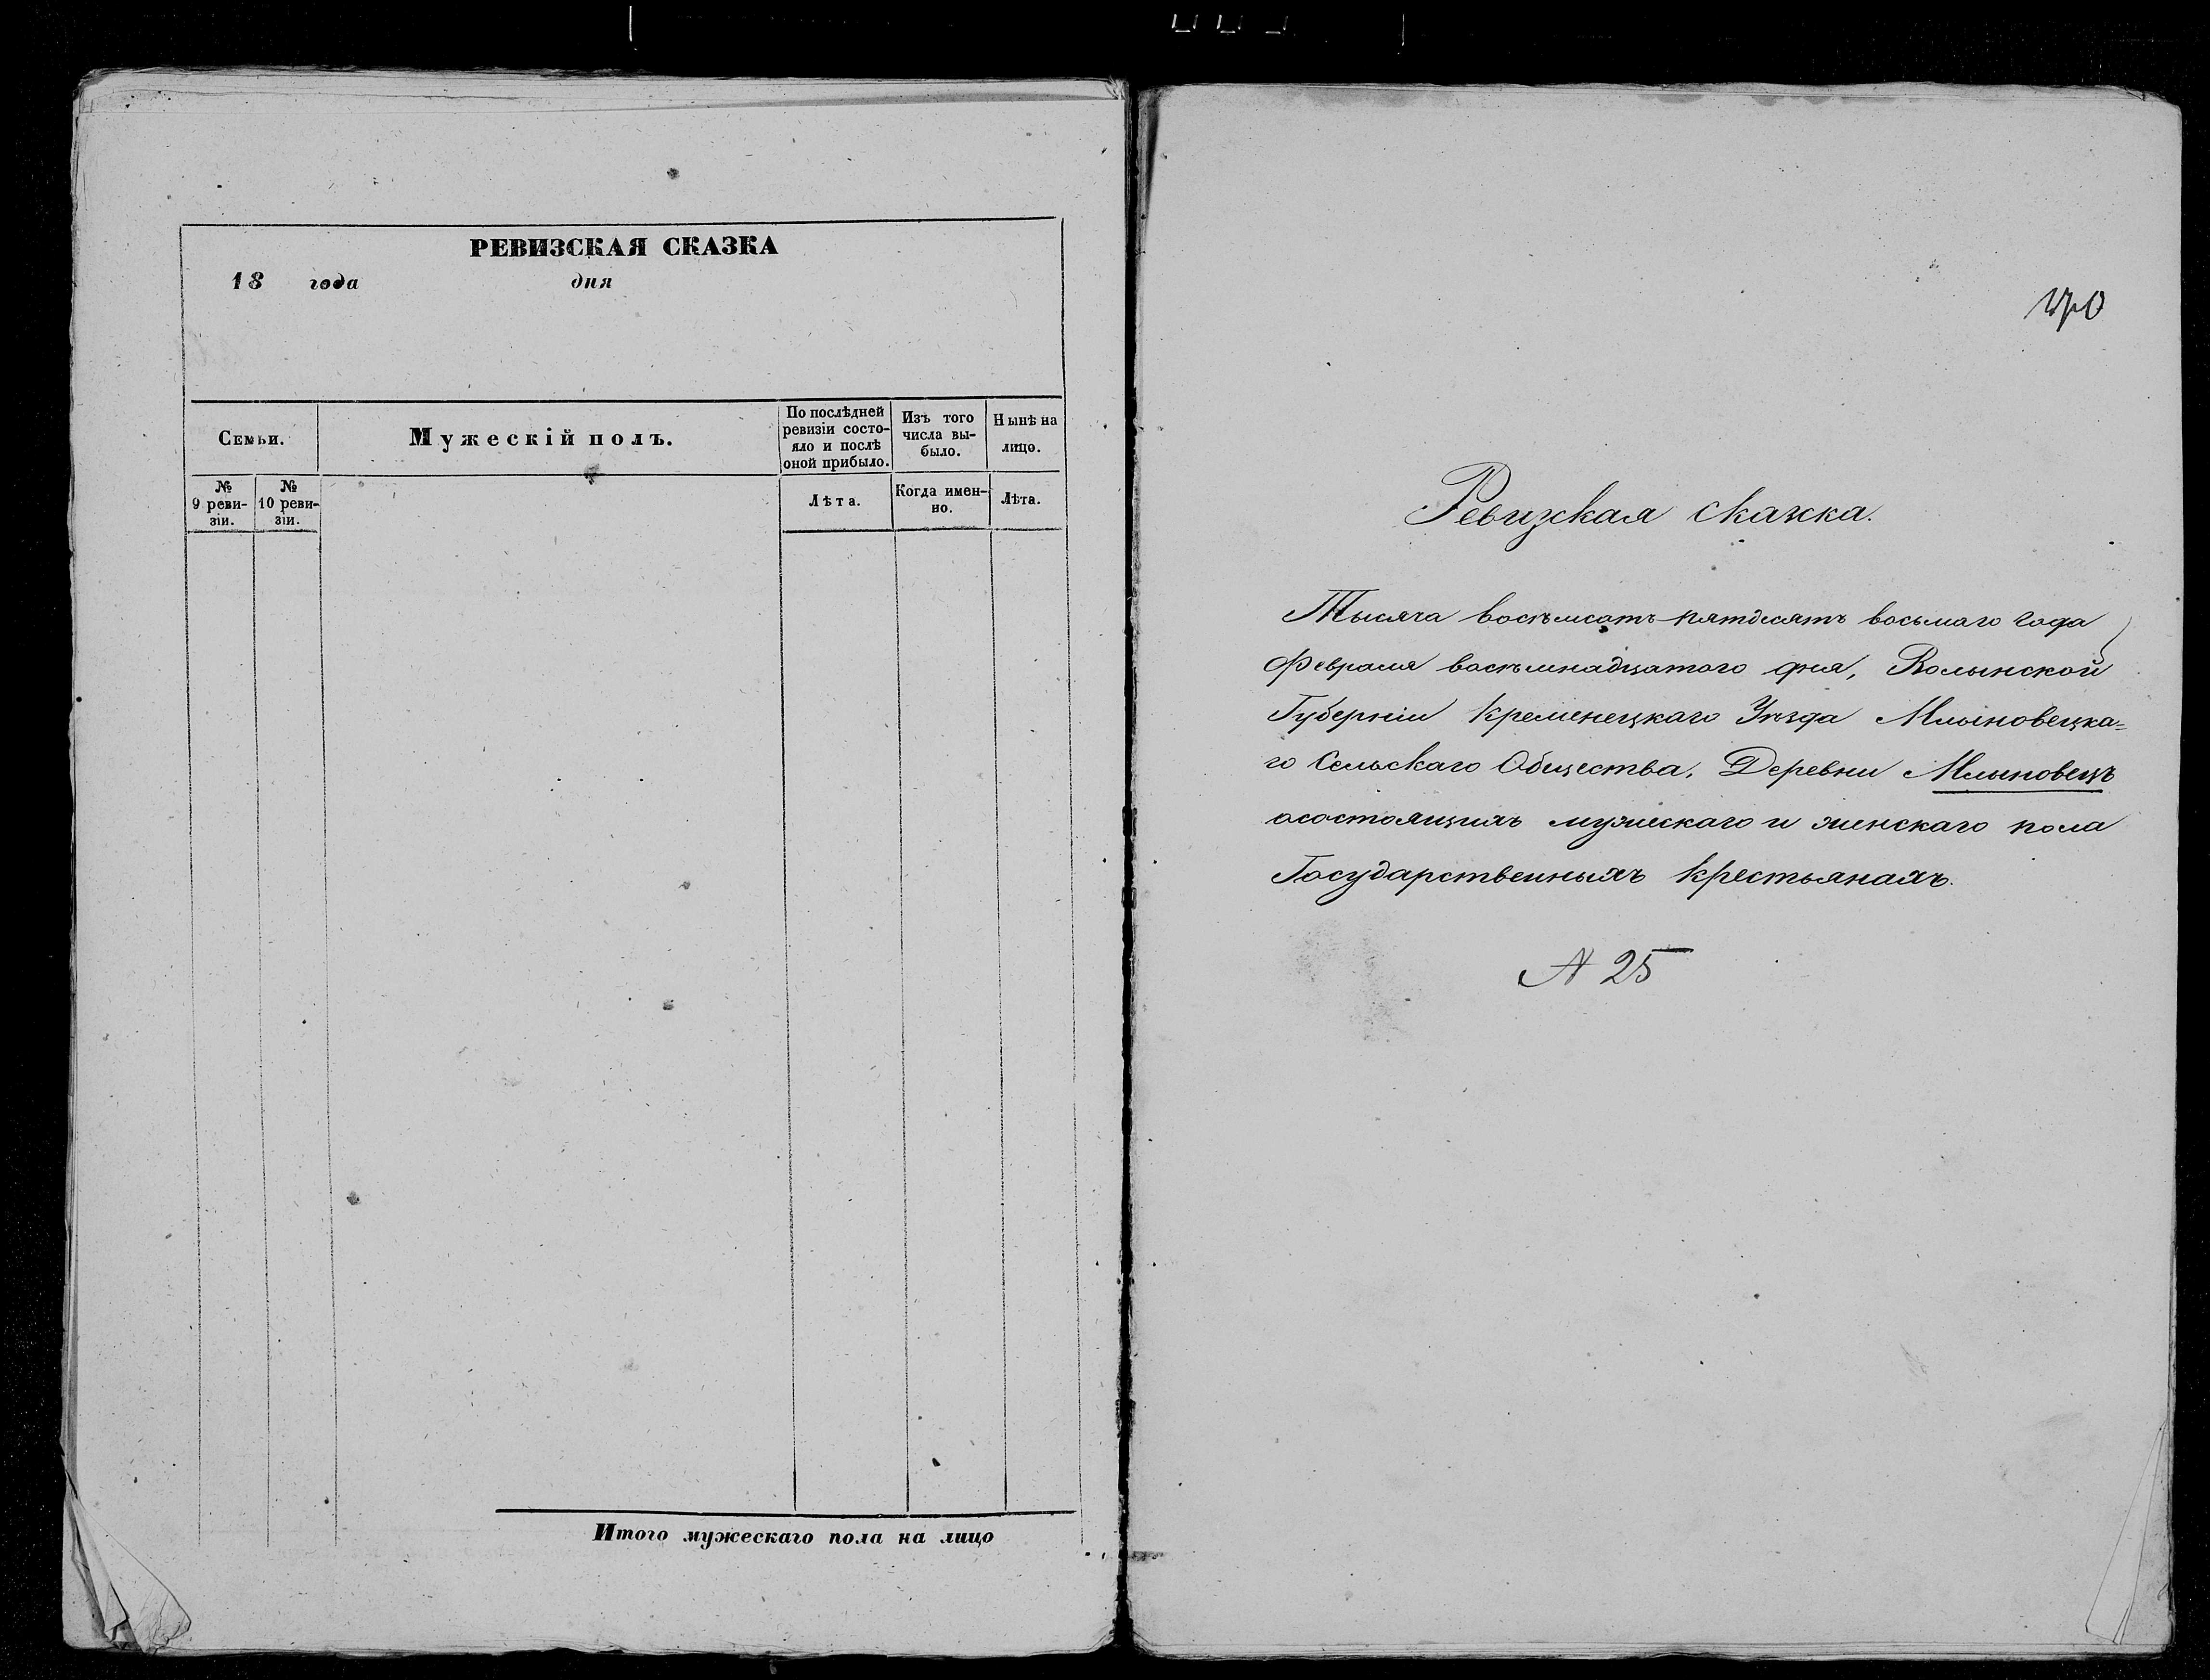 РЕВИЗСКАЯ СКАЗКА
18 года дня
Семьи.
Мужескій полъ.
По послѣдней
ревизіи состо-
яло и послѣ
оной прибыло.
Изъ того
числа вы-
было.
Нынѣ на
лицо.
№
9 реви-
зіи.
№
10 реви-
зіи.
Лѣта.
Когда имен-
но.
Лѣта.
Итого мужескаго пола на лицо
Ревизкая сказка.
Тысяча восемсотъ пятдесятъ восьмаго года
Февраля восемнадцатого дня, Волынской
Губерніи Кременецкаго Уѣзда Млыновецка=
го Сельскаго Общества, Деревни Млыновецъ
осостоящихъ мужескаго и женскаго пола
Государственныхъ крестьянахъ.
№ 25